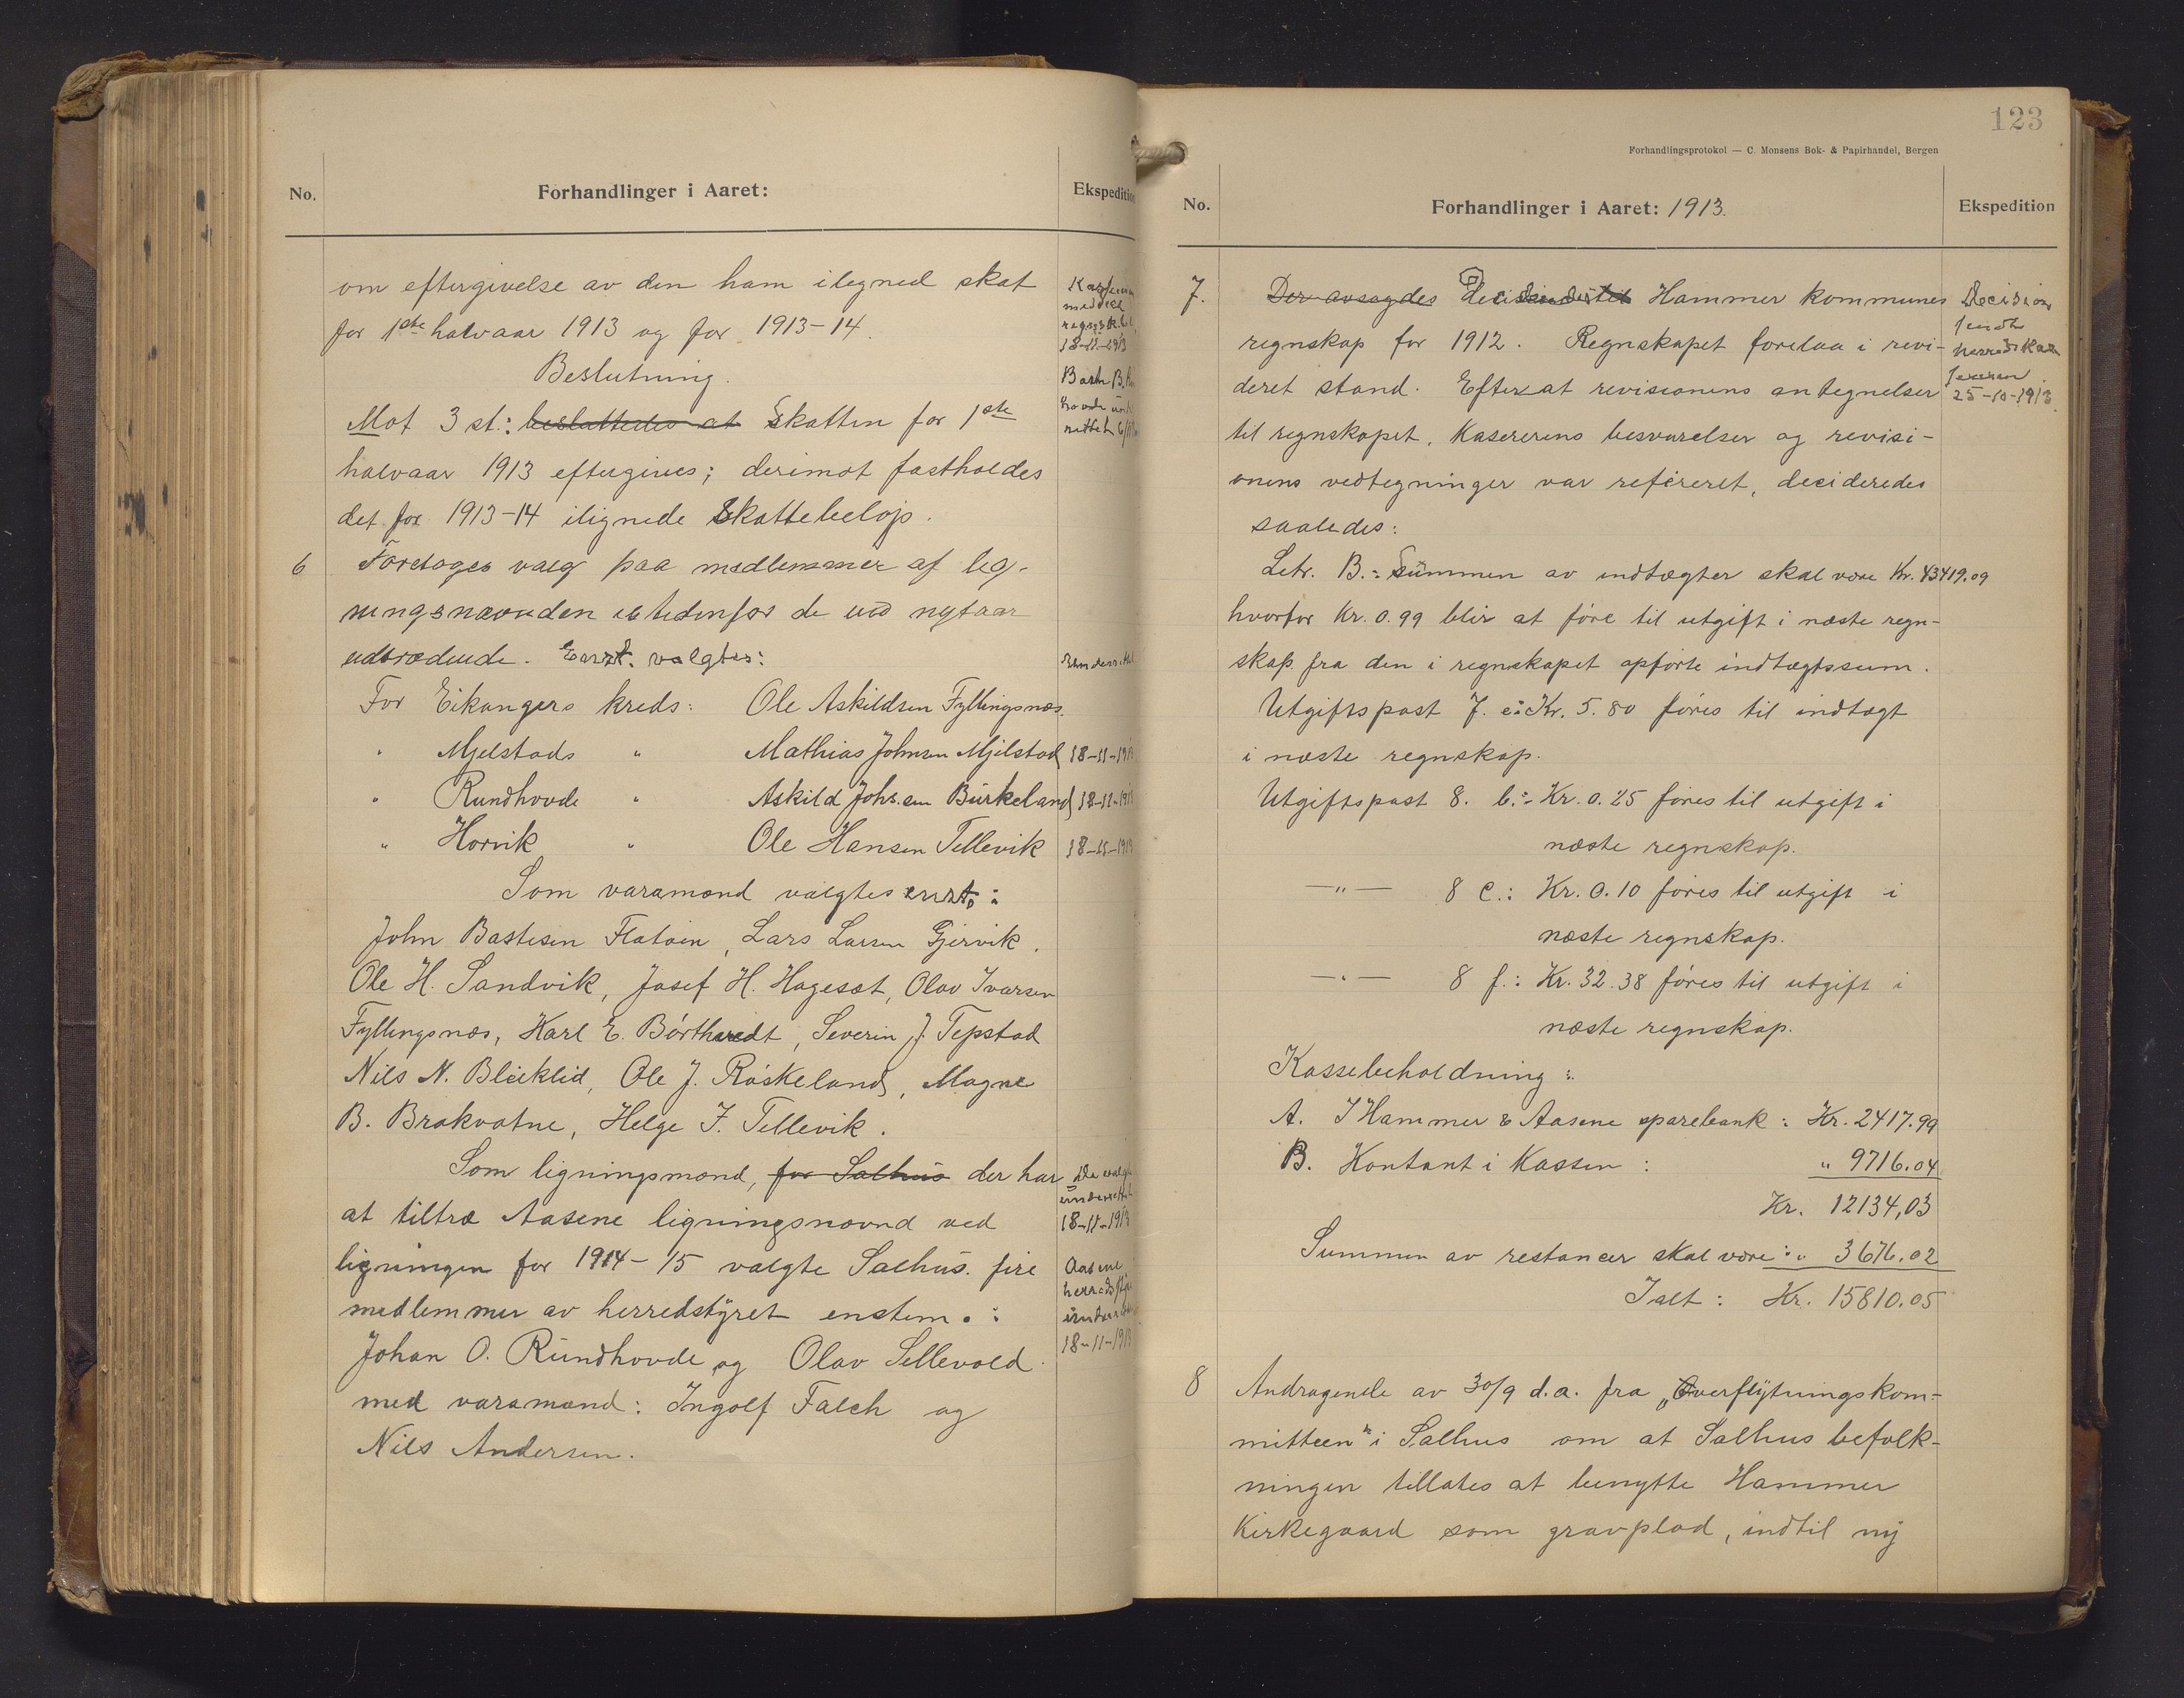 No.
Forhandlinger i Aaret:
Ekspedition
om eftergivelse av den ham ilegned skat
for 1ste halvaar 1913 og for 1913-14.
Beslutning.
Mot 3 st.: besluttedes at Skatten for 1ste
halvaar 1913 eftergives; derimot fastholdes
det for 1913-14 ilignede Skattebeløp.
18-11-1913
6 Foretoges valg paa medlemmer af lig-
ningsnævnden istedenfor de ved nytaar
udtrædende. Enst. valgtes:
For Eikangers kreds: Ole Askildsen Fyllingsnæs.
" Mjelstads " Mathias Johnsen Mjelstad 18-11-1913
" Rundhovde " Askild Johs.sen Burkeland 18-11-1913
" Horvik " Ole Hansen Tellevik 18-11-1913
Som varamænd valgtes enst.:
John Bastesen Flatøen, Lars Larsen Gjervik.
Ole H. Sandvik, Josef H. Hagesæt, Olav Ivarsen
Fyllingsnæs, Karl E. Börthveedt, Severin J. Tepstad
Nils N. Bleiklid, Ole J. Röskeland, Magne
B. Brakvatne, Helge J. Tellevik.
Som ligningsmænd, for Salhus der har
at tiltræ Aasene ligningsnævnd ved
ligningen for 1914-15 valgte Salhus. fire
medlemmer av herredstyret enstem.:
Johan O. Rundhovde og Olav Sellevold
med varamænd: Ingolf Falch og
Nils Andersen.
De valgte
underrettet
18-11-1913
Aasene
herredsstyre
underrettet
18-11-1913
123
Forhandlingsprotokol — C. Monsens Bok- & Papirhandel, Bergen
No.
Forhandlinger i Aaret: 1913.
Ekspedition
7. Der avsagdes Hammer kommunes
regnskap for 1912. Regnskapet forelaa i revi-
deret stand. Efterat revisionens antegnelser
til regnskapet, Kasererens besvarelser og revisi-
onens vedtegninger var refereret, decideredes
saaledes:
Decision
sendt
herredskas-
sereren
25-10-1913.
Letr. B.: Summen av indtægter skal være Kr. 43419.09
hvorfor Kr. 0.99 blir at føre til utgift i næste regn-
skap fra den i regnskapet opførte indtægtssum.
Utgiftspost 7. e: Kr. 5.80 føres til indtægt
i næste regnskap.
Utgiftspost 8. b.: Kr. 0.25 føres til utgift i
næste regnskap.
—"— 8 c.: Kr. 0.10 føres til utgift i
næste regnskap.
—"— 8 f.: Kr. 32.38 føres til utgift i
næste regnskap.
Kassebeholdning:
A. I Hammer & Aasene sparebank: Kr. 2417.99
B. Kontant i Kassen: " 9716.04
Kr. 12134,03
Summen av restancer skal være: " 3676.02
Ialt: Kr. 15810.05
8 Andragende av 30/9 d.a. fra „Overflytningskom-
mitteen" i Salhus om at Salhus befolk-
ningen tillates at benytte Hammer
Kirkegaard som gravplad, indtil ny